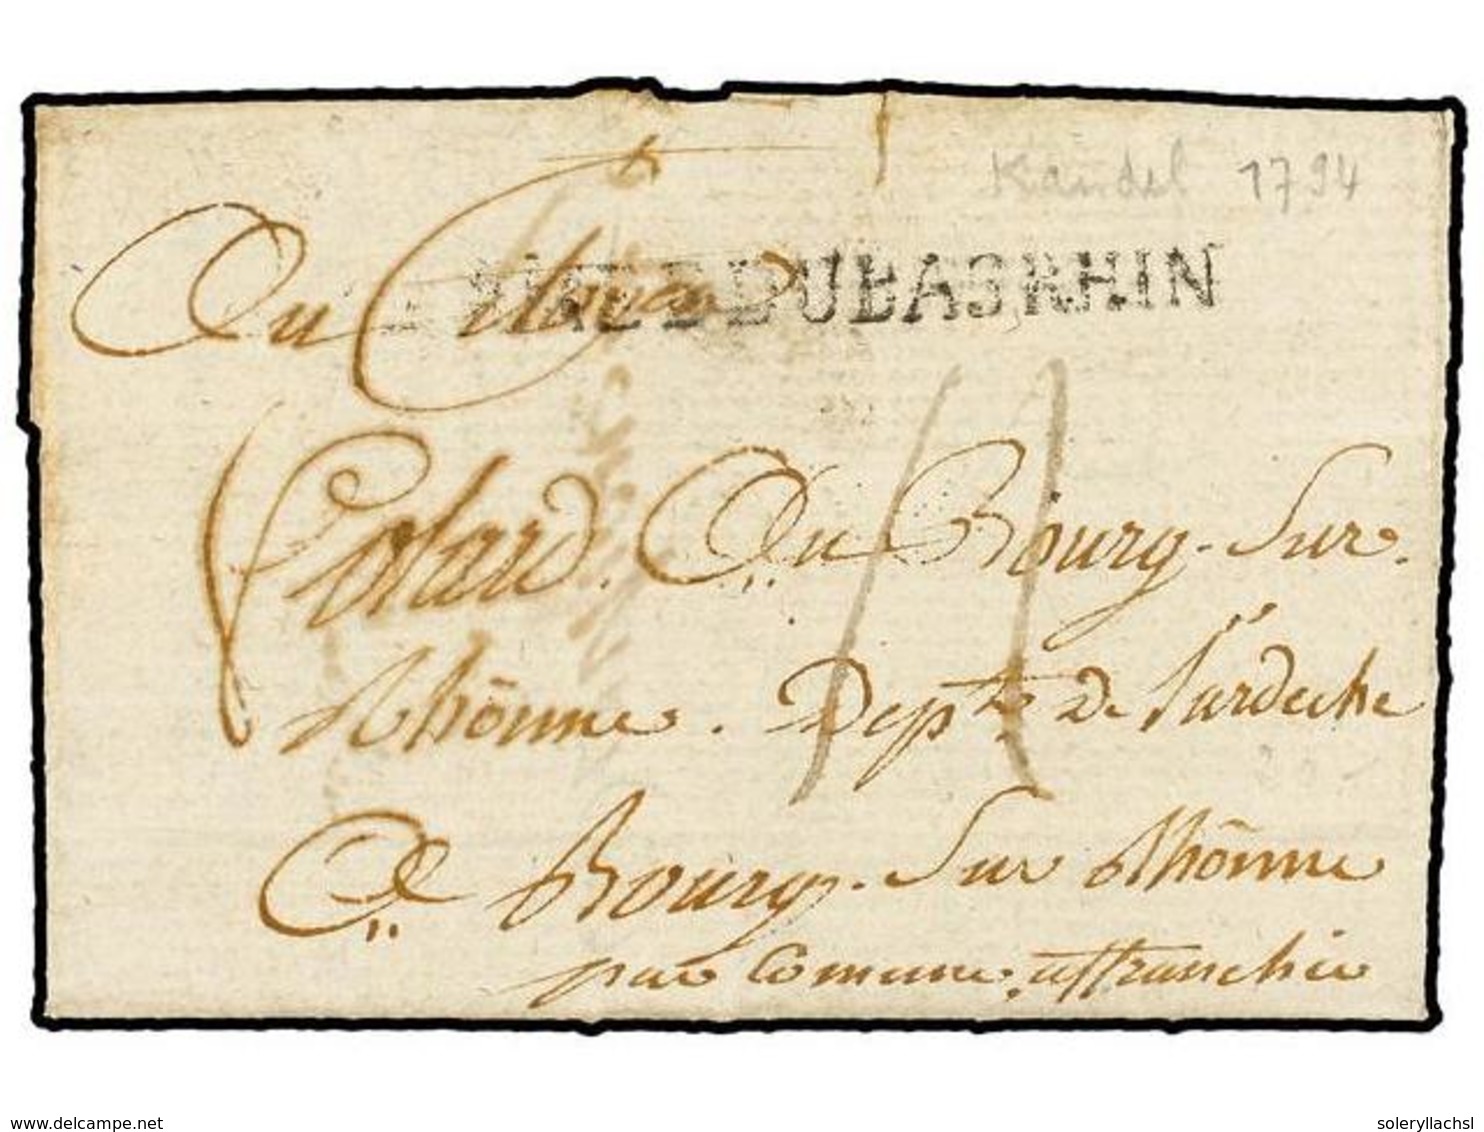 Kandel 1794
Au Citoyen
DUBASRHIN
11
Colard. Au Bourg-sur
Rhônne. Dept de l'ardeche
A Bourg-sur Rhônne
par Comune affranchie
20-
delcampe.net
soleryllachsl